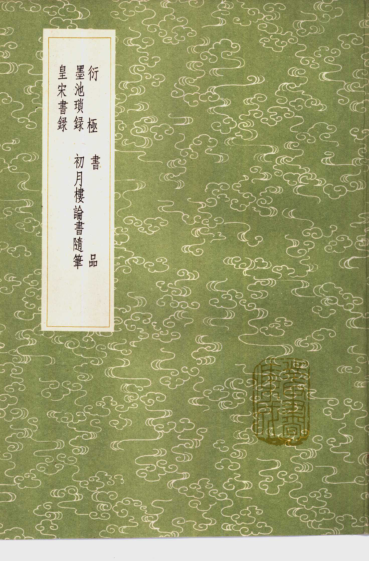 衍極 書品
墨池瑣録 初月樓論書隨筆
皇宋書録
叢書集成